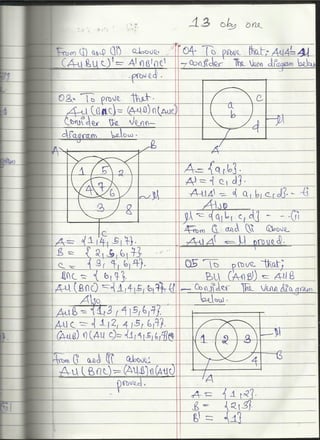 13 obj one
From (i) and (ii) above.
(A∪B∪C)' = A'∩B'∩C'
proved.
03. To prove that.
A∪(B∩C) = (A∪B)∩(A∪C)
Consider the venn-
diagram below.
A
B
1
5
2
4
7
6
3
8
μ
C
A = {1,4,5,7}.
B = {2,5,6,7}
C = {3,4,6,7}.
B∩C = {6,7}
A∪(B∩C) = {1,4,5,6,7}. (i
Also
A∪B = {1,3,4,5,6,7}.
A∪C = {1,2,4,5,6,7}.
(A∪B)∩(A∪C) = {1,4,5,6,7}
From (i) and (ii) above:
A∪(B∩C) = (A∪B)∩(A∪C)
proved.
04. To prove that; A∪A' = μ
- consider the Venn diagram below
a
b
c
d
μ
A
A = {a,b}.
A' = {c,d}.
A∪A' = {a,b,c,d}. - (i
Also
μ = {a,b,c,d} - - (ii
From (i and (ii above
A∪A' = μ proved.
05 To prove that;
B∪(A∩B') = A∪B
- Consider the venn diagram
below.
1
2
3
4
μ
B
A
A = {1,2}.
B = {2,3}.
B' = {1}